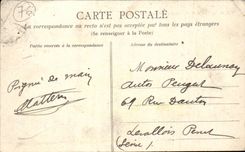 76
CARTE POSTALE
La correspondance au recto n'est pas acceptée par tous les pays étrangers
(Se renseigner à la Poste)
Partie réservée à la correspondance
Adresse du destinataire
Poignée de main
Monsieur Delaunay
Autos Peugeot
69 Rue Danton
Levallois Perret
Seine